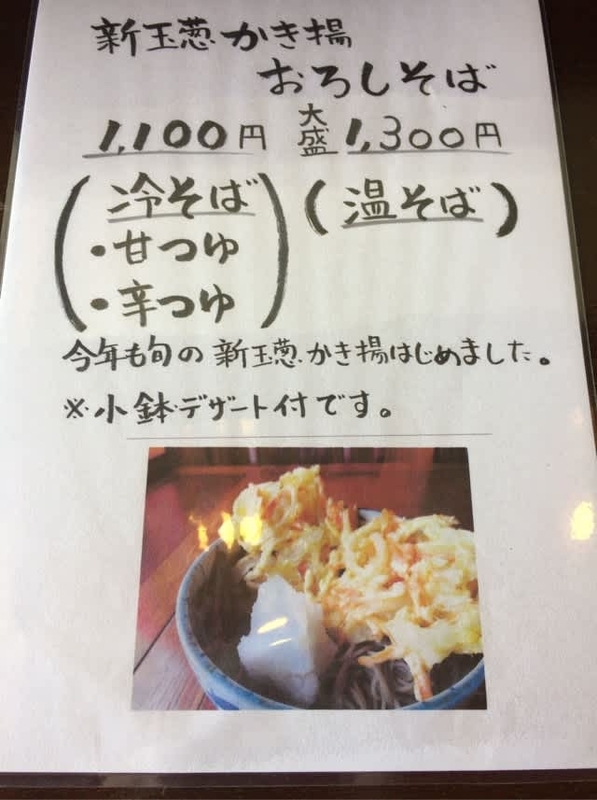 新玉葱かき揚
おろしそば
1,100円 大盛 1,300円
(冷そば) (温そば)
・甘つゆ
・辛つゆ
今年も旬の新玉葱かき揚はじめました。
※小鉢・デザート付です。